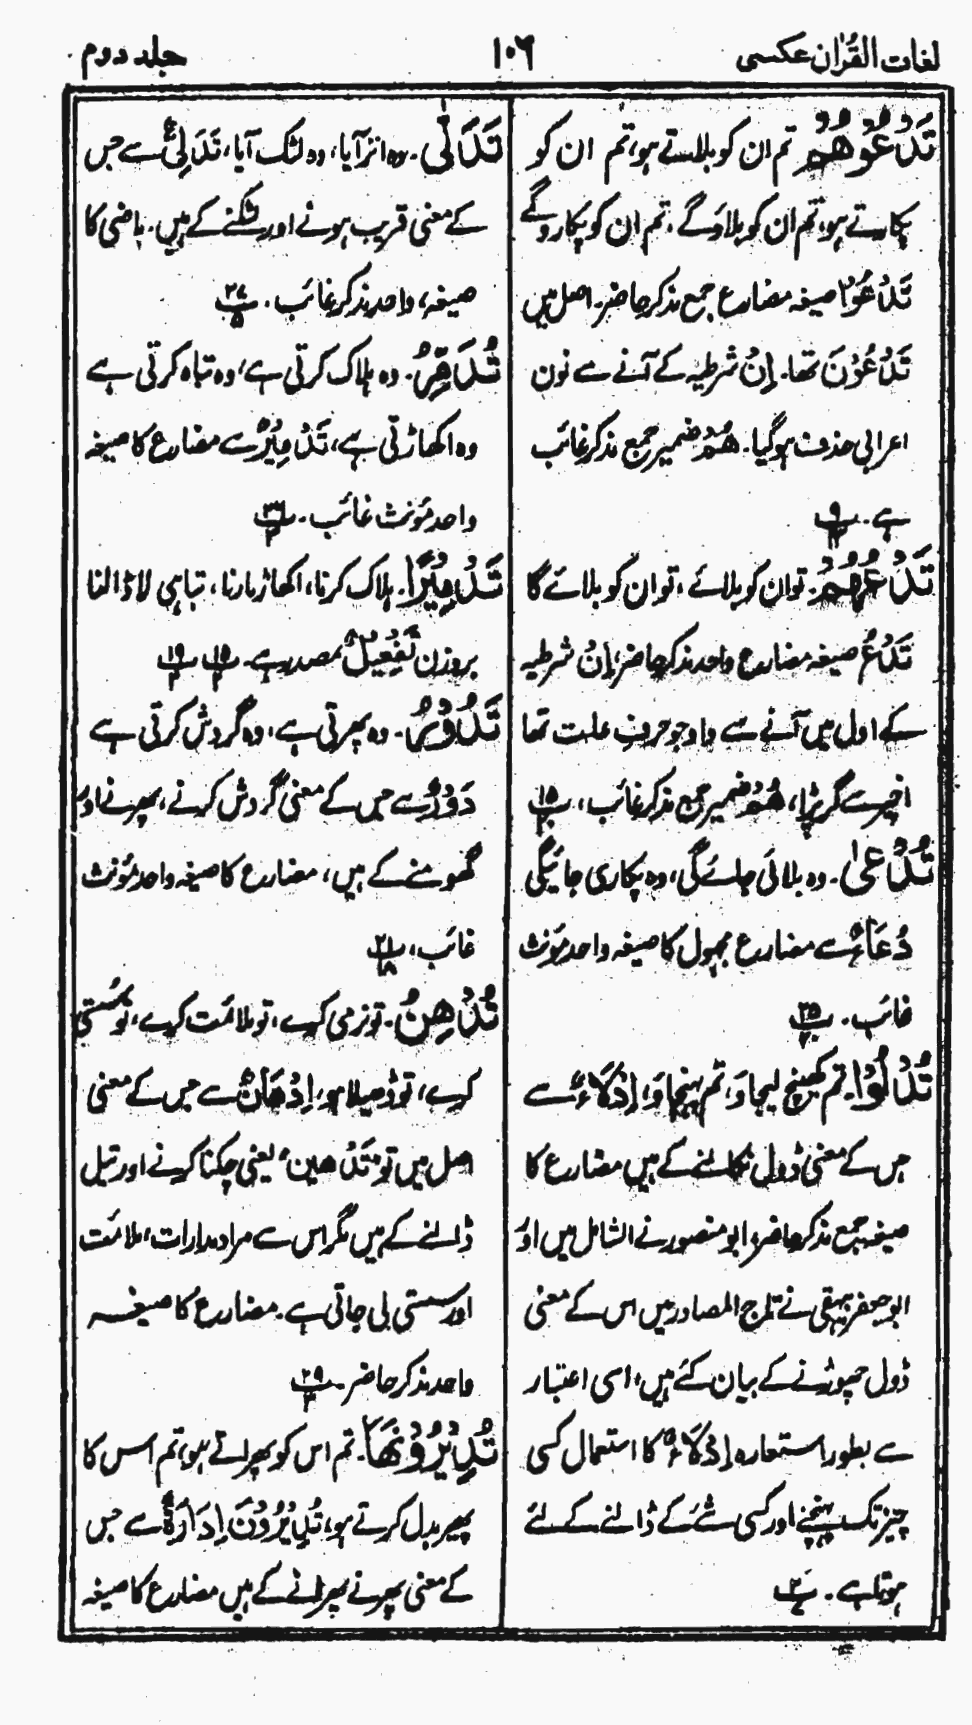 لغات القرآن عکسی
۱۰۶
جلد دوم
تَدْعُوْهُمْ تم ان کو بلاتے ہو، تم ان کو
پکارتے ہو، تم ان کو بلاؤ گے، تم ان کو پکارو گے
تَدْعُوْا صیغہ مضارع جمع مذکر حاضر۔ اصل میں
تَدْعُوْنَ تھا۔ اِنْ شرطیہ کے آنے سے نون
اعرابی حذف ہوگیا۔ هُمْ ضمیر جمع مذکر غائب
ہے۔ پ ۹
تَدْعُهُمْ۔ تو ان کو بلائے، تو ان کو بلائے گا
تَدْعُ صیغہ مضارع واحد مذکر حاضر، اِنْ شرطیہ
کے اول میں آنے سے واو جو حرفِ علت تھا
اخیر سے گر پڑا، هُمْ ضمیر جمع مذکر غائب، پ ۱۵
تُدْعٰی۔ وہ بلائی جائے گی، وہ پکاری جائیگی
دُعَاءٌ سے مضارع مجہول کا صیغہ واحد مؤنث
غائب۔ پ ۲۵
تُدْلُوْا۔ تم کھینچ لیجاؤ، تم پہنچاؤ، اِدْلَاءٌ سے
جس کے معنی ڈول نکالنے کے ہیں مضارع کا
صیغہ جمع مذکر حاضر، ابو منصور نے الشامل میں اور
ابو جعفر بیہقی نے تاج المصادر میں اس کے معنی
ڈول چھوڑنے کے بیان کئے ہیں، اسی اعتبار
سے بطور استعارہ اِدْلَاءٌ کا استعمال کسی
چیز تک پہنچنے اور کسی شئے کے ڈالنے کے لئے
ہوتا ہے۔ پ ۲
تَدَلّٰی۔ وہ اتر آیا، وہ لٹک آیا، تَدَلِّیْ سے جس
کے معنی قریب ہونے اور لٹکنے کے ہیں۔ ماضی کا
صیغہ، واحد مذکر غائب۔ پ ۲۷
تُدَمِّرُ۔ وہ ہلاک کرتی ہے، وہ تباہ کرتی ہے
وہ اکھاڑتی ہے، تَدْمِیْرٌ سے مضارع کا صیغہ
واحد مؤنث غائب۔ پ ۲۶
تَدْمِیْرًا۔ ہلاک کرنا، اکھاڑ مارنا، تباہی لا ڈالنا
بروزن تَفْعِیْلٌ مصدر ہے۔ پ ۱۵ پ ۱۹
تَدُوْرُ۔ وہ پھرتی ہے، وہ گردش کرتی ہے
دَوْرٌ سے جس کے معنی گردش کرنے، پھرنے اور
گھومنے کے ہیں، مضارع کا صیغہ واحد مؤنث
غائب، پ ۲۱
تُدْهِنُ۔ تو نرمی کرے، تو ملائمت کرے، تو سستی
کرے، تو ڈھیلا ہو، اِدْهَانٌ سے جس کے معنی
اصل میں تو تَدْهین یعنی چکنا کرنے اور تیل
ڈالنے کے ہیں مگر اس سے مراد مدارات، ملائمت
اور سستی لی جاتی ہے۔ مضارع کا صیغہ
واحد مذکر حاضر۔ پ ۲۹
تُدِیْرُوْنَهَا۔ تم اس کو پھراتے ہو، تم اس کا
پھیر بدل کرتے ہو، تُدِیْرُوْنَ اِدَارَةٌ سے جس
کے معنی پھرنے پھرانے کے ہیں مضارع کا صیغہ